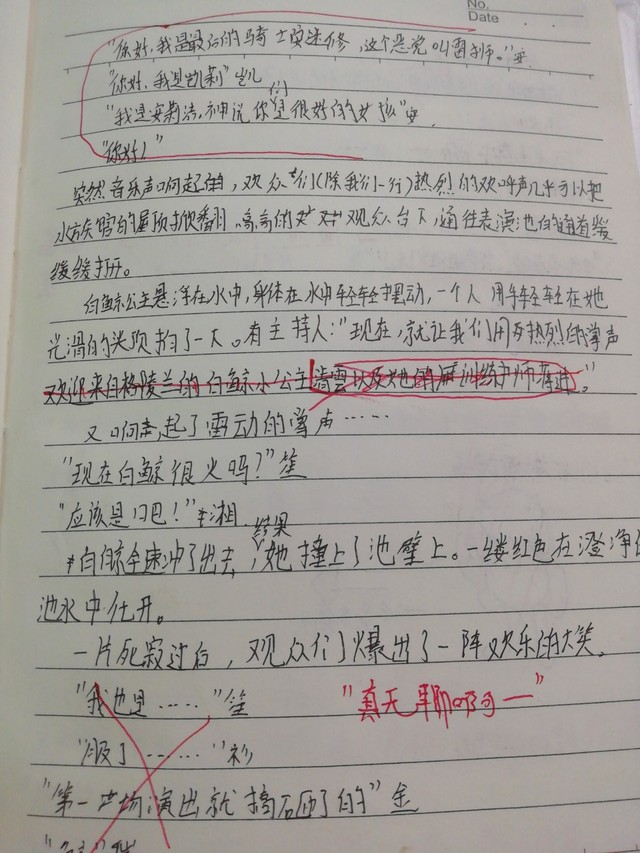 No.
Date
"你好,我是最后的骑士安迷修,这个恶党叫雷狮。"安
"你好,我是凯莉"凯
"我是安莉洁,神说你(们)是很好的女孩"安
"你好!"
突然音乐声响起,观众们(除我们一行)热烈的欢呼声几乎可以把
水族馆的屋顶掀翻。高高的观众台下,通往表演池的通道缓
缓打开。
白鲸公主悬浮在水中,身体在水中轻轻摆动,一个人用手轻轻在她
光滑的头顶拍了一下。有主持人:"现在,就让我们用热烈的掌声
欢迎来自格陵兰的白鲸小公主清雲以及她的训练师
又响起了雷动的掌声……
"现在白鲸很火吗?"笙
"应该是吧!"湘
白鲸全速冲了出去,结果她撞上了池壁上。一缕红色在澄净的
池水中化开。
一片死寂过后,观众们爆出了一阵欢乐的大笑。
"我也是……"笙
"真无聊啊—"
"服了……"衫
"第一场演出就搞砸了的"金